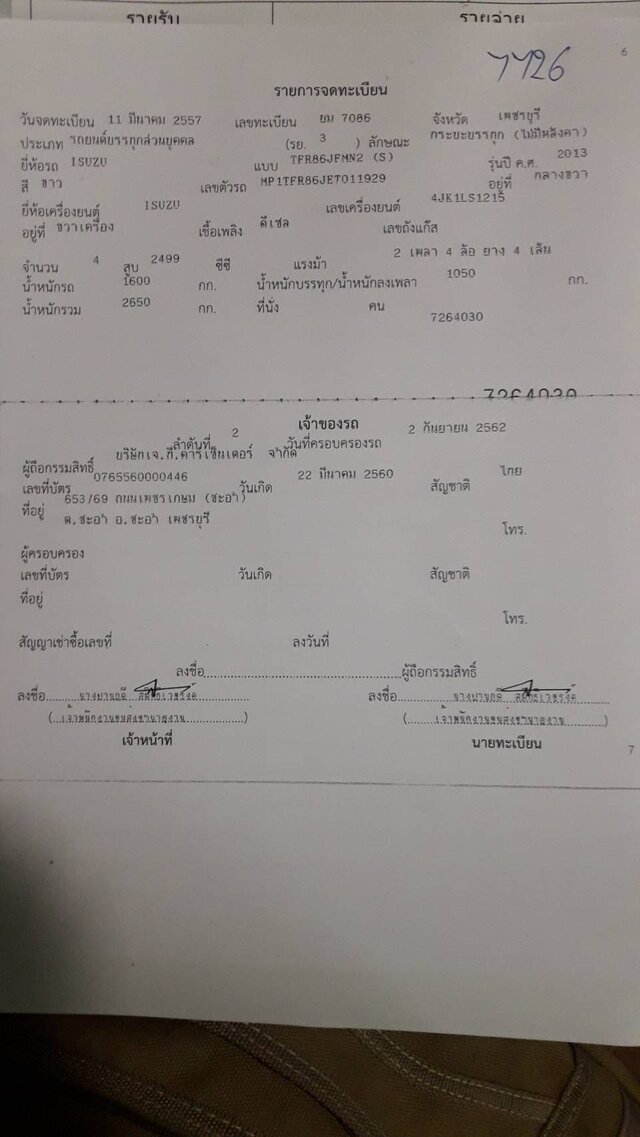 รายรับ รายจ่าย
7726 6
รายการจดทะเบียน
วันจดทะเบียน 11 มีนาคม 2557 เลขทะเบียน ยม 7086 จังหวัด เพชรบุรี
ประเภท รถยนต์บรรทุกส่วนบุคคล (รย. 3 ) ลักษณะ กระยะบรรทุก (ไม่มีหลังคา)
ยี่ห้อรถ ISUZU แบบ TFR86JFMN2 (S) รุ่นปี ค.ศ. 2013
สี ขาว เลขตัวรถ MP1TFR86JET011929 อยู่ที่ กลางขวา
ยี่ห้อเครื่องยนต์ ISUZU เลขเครื่องยนต์ 4JK1LS1215
อยู่ที่ ขวาเครื่อง เชื้อเพลิง ดีเซล เลขถังแก๊ส
จำนวน 4 สูบ 2499 ซีซี แรงม้า 2 เพลา 4 ล้อ ยาง 4 เส้น
น้ำหนักรถ 1600 กก. น้ำหนักบรรทุก/น้ำหนักลงเพลา 1050 กก.
น้ำหนักรวม 2650 กก. ที่นั่ง คน
7264030
7264030
เจ้าของรถ
ลำดับที่ 2 วันที่ครอบครองรถ 2 กันยายน 2562
ผู้ถือกรรมสิทธิ์ บริษัทเจ.ที.คาร์เซ็นเตอร์ จำกัด
เลขที่บัตร 0765560000446 วันเกิด 22 มีนาคม 2560 สัญชาติ ไทย
ที่อยู่ 653/69 ถนนเพชรเกษม (ชะอำ)
ต.ชะอำ อ.ชะอำ เพชรบุรี
โทร.
ผู้ครอบครอง
เลขที่บัตร วันเกิด สัญชาติ
ที่อยู่
โทร.
สัญญาเช่าซื้อเลขที่ ลงวันที่
ลงชื่อ ผู้ถือกรรมสิทธิ์
ลงชื่อ ลงชื่อ
(เจ้าพนักงานขนส่งชำนาญงาน) (เจ้าพนักงานขนส่งชำนาญงาน)
เจ้าหน้าที่ นายทะเบียน
7